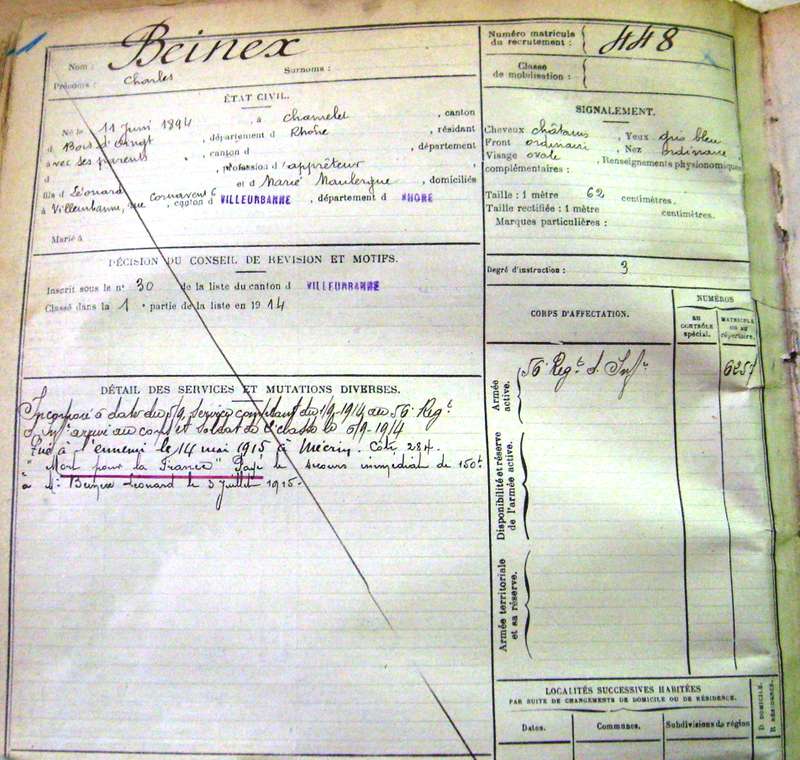 Nom : Beinex
Prénoms : Charles Surnoms :
ÉTAT CIVIL.
Né le 11 Juin 1894, à Chamelet, canton
d Bois d'Oingt, département d Rhône, résidant
avec ses parents, canton d, département
d, profession d'apprêteur
fils d Léonard et d Marie Maulergue, domiciliés
à Villeurbanne, rue Cornavent 6, canton d VILLEURBANNE, département d RHONE
Marié à
DÉCISION DU CONSEIL DE RÉVISION ET MOTIFS.
Inscrit sous le n° 30 de la liste du canton d VILLEURBANNE
Classé dans la 1e partie de la liste en 1914
DÉTAIL DES SERVICES ET MUTATIONS DIVERSES.
Incorporé à dater du 5/9, Service comptant du 1/9-1914 au 56e Regt
d'Infie arrivé au corps et soldat de 2e classe le 5/9-1914
Tué à l'ennemi le 14 mai 1915 à Mécrin. Côte 284.
"Mort pour la France" Payé le secours immédiat de 150f
à Mr Beinex Léonard le 3 Juillet 1915-
Numéro matricule
du recrutement : 448
Classe
de mobilisation :
SIGNALEMENT.
Cheveux châtains, Yeux gris bleu
Front ordinaire, Nez ordinaire
Visage ovale, Renseignements physionomiques
complémentaires :
Taille : 1 mètre 62 centimètres.
Taille rectifiée : 1 mètre centimètres.
Marques particulières :
Degré d'instruction : 3
CORPS D'AFFECTATION.
NUMÉROS
AU
CONTRÔLE
spécial.
MATRICULE
OU AU
répertoire.
Armée
active.
56e Regt d'Infie
6257
Disponibilité et réserve
de l'armée active.
Armée territoriale
et sa réserve.
LOCALITÉS SUCCESSIVES HABITÉES
PAR SUITE DE CHANGEMENTS DE DOMICILE OU DE RÉSIDENCE.
Dates. Communes. Subdivisions de région
D. DOMICILE.
R. RÉSIDENCE.